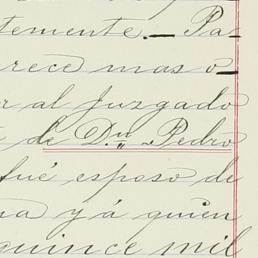 temente. Pa-
rece mas o-
r al Juzgado
de D.ⁿ Pedro
fué esposo de
na y á quien
quince mil